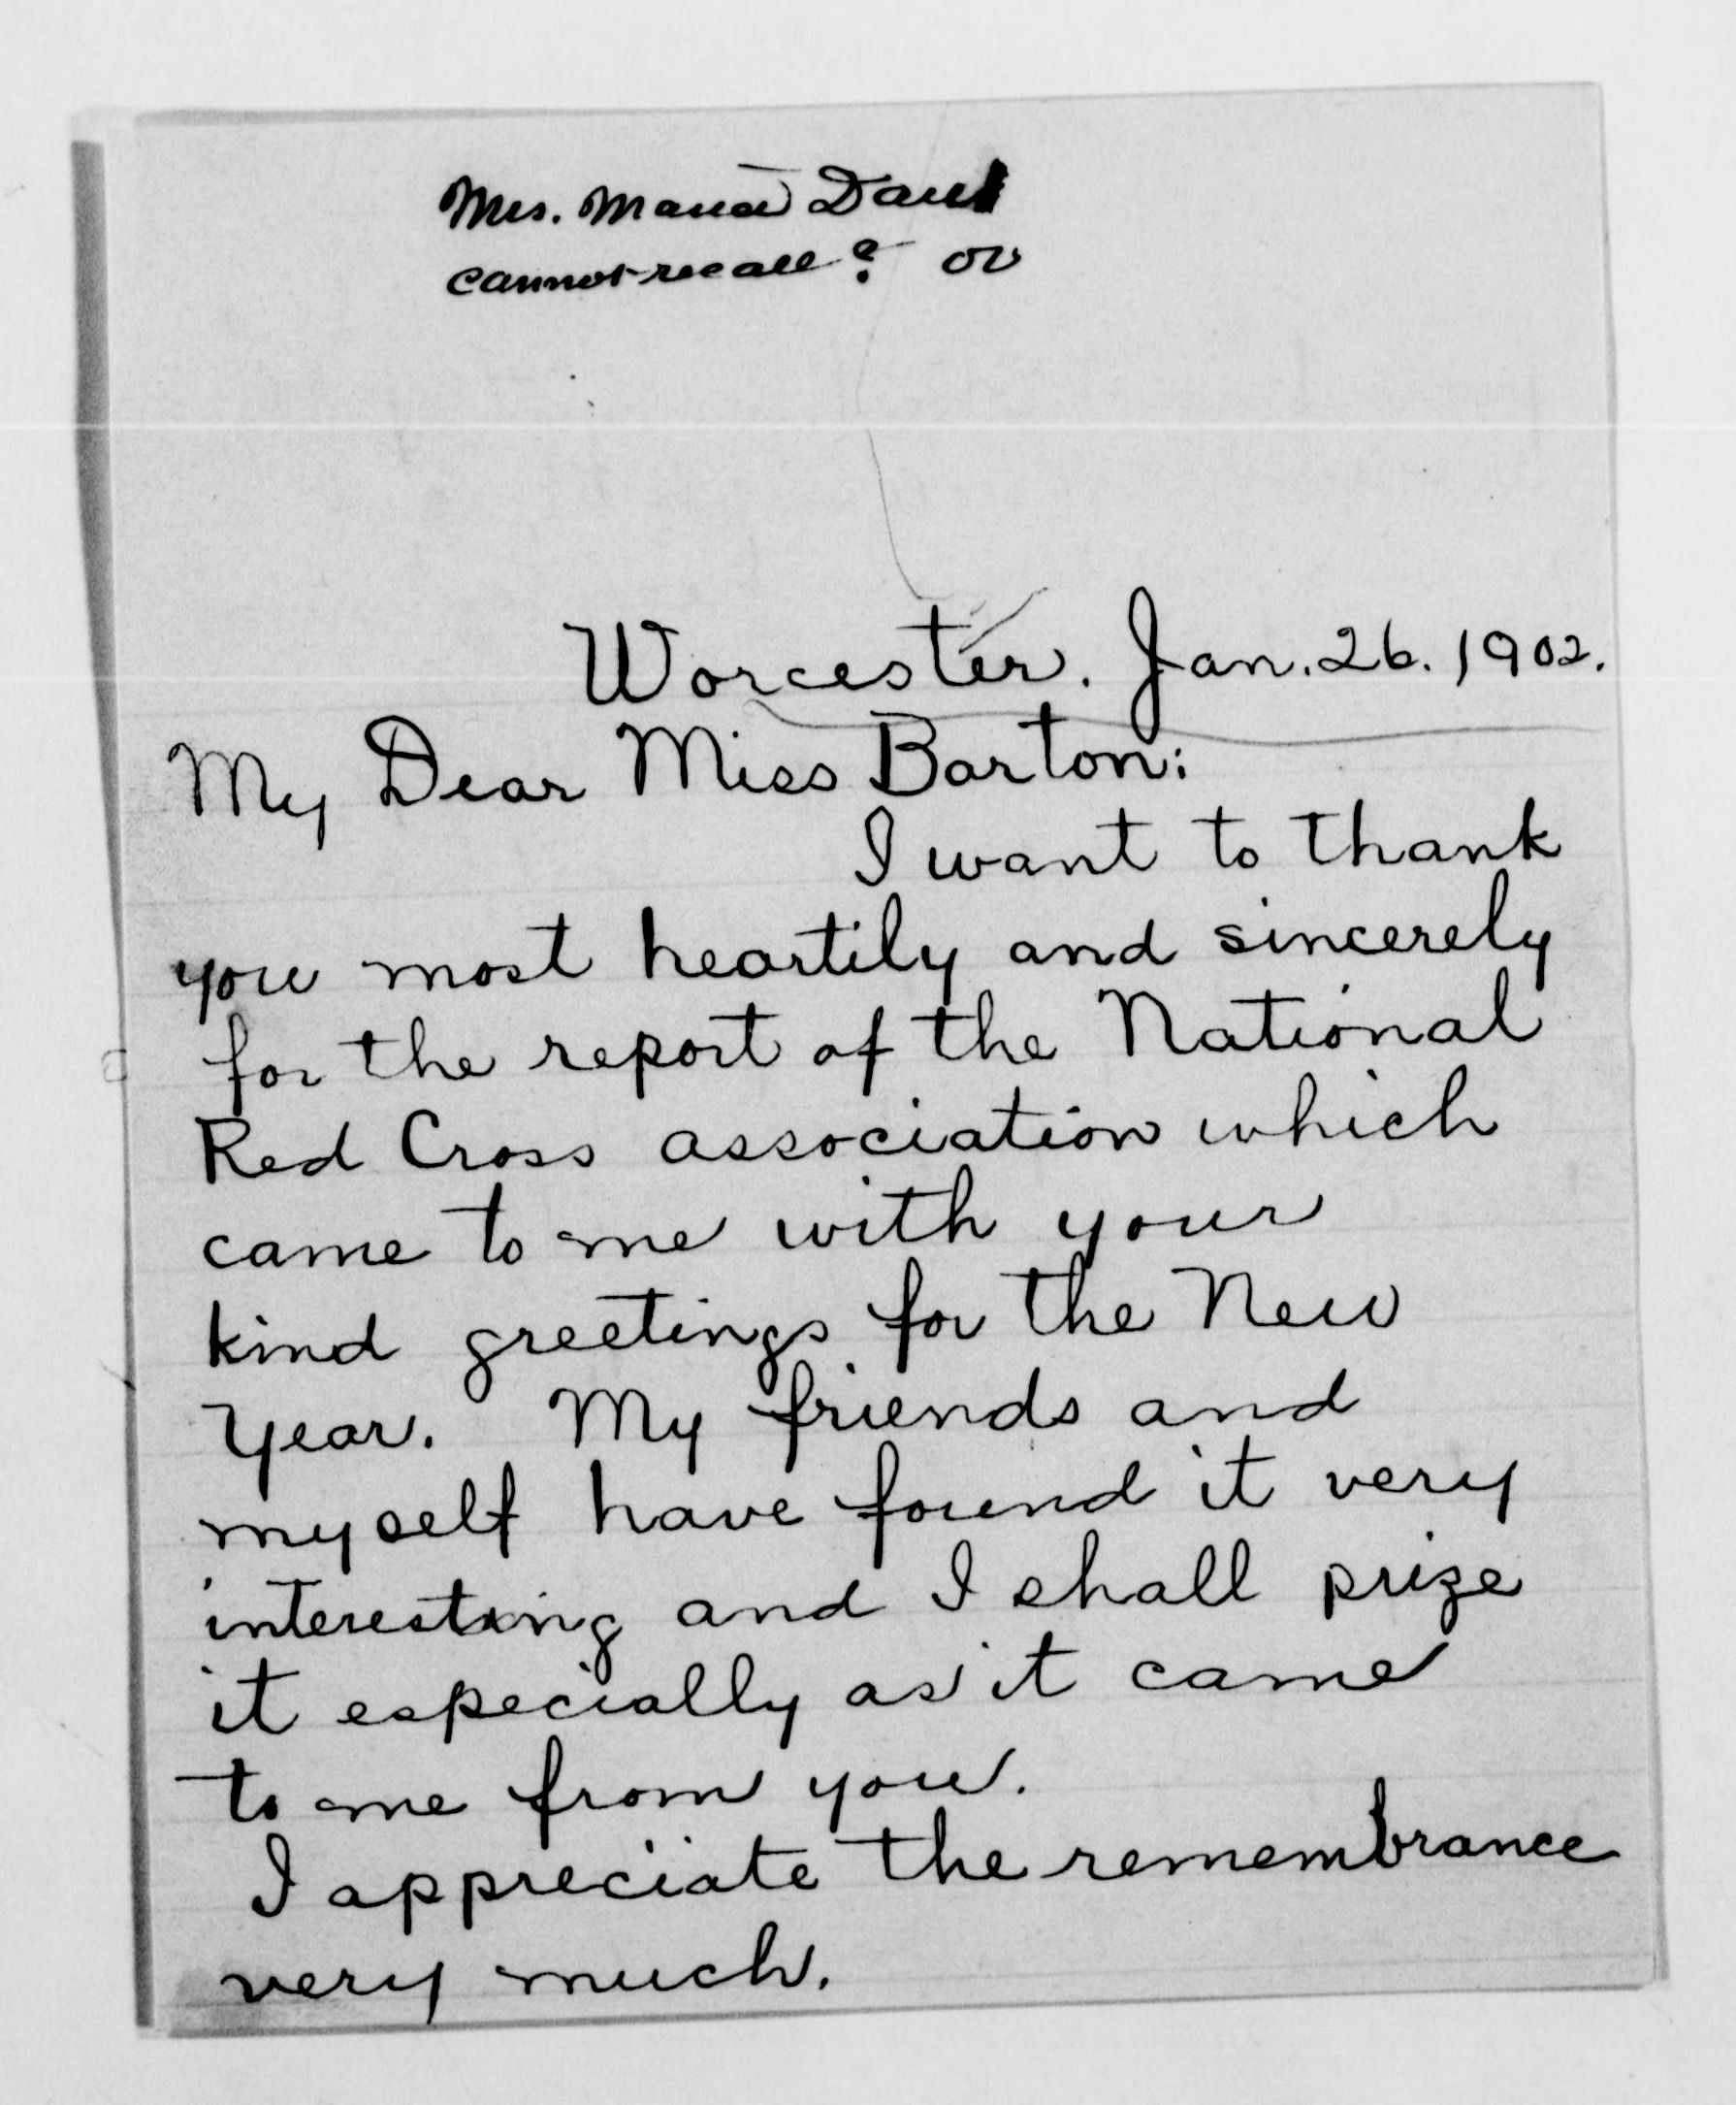 Mrs. Maria
cannot recall?
Worcester. Jan. 26. 1902.
My Dear Miss Barton:
I want to thank
you most heartily and sincerely
for the report of the National
Red Cross association which
came to me with your
kind greetings for the New
Year. My friends and
myself have found it very
interesting and I shall prize
it especially as it came
to me from you.
I appreciate the remembrance
very much.